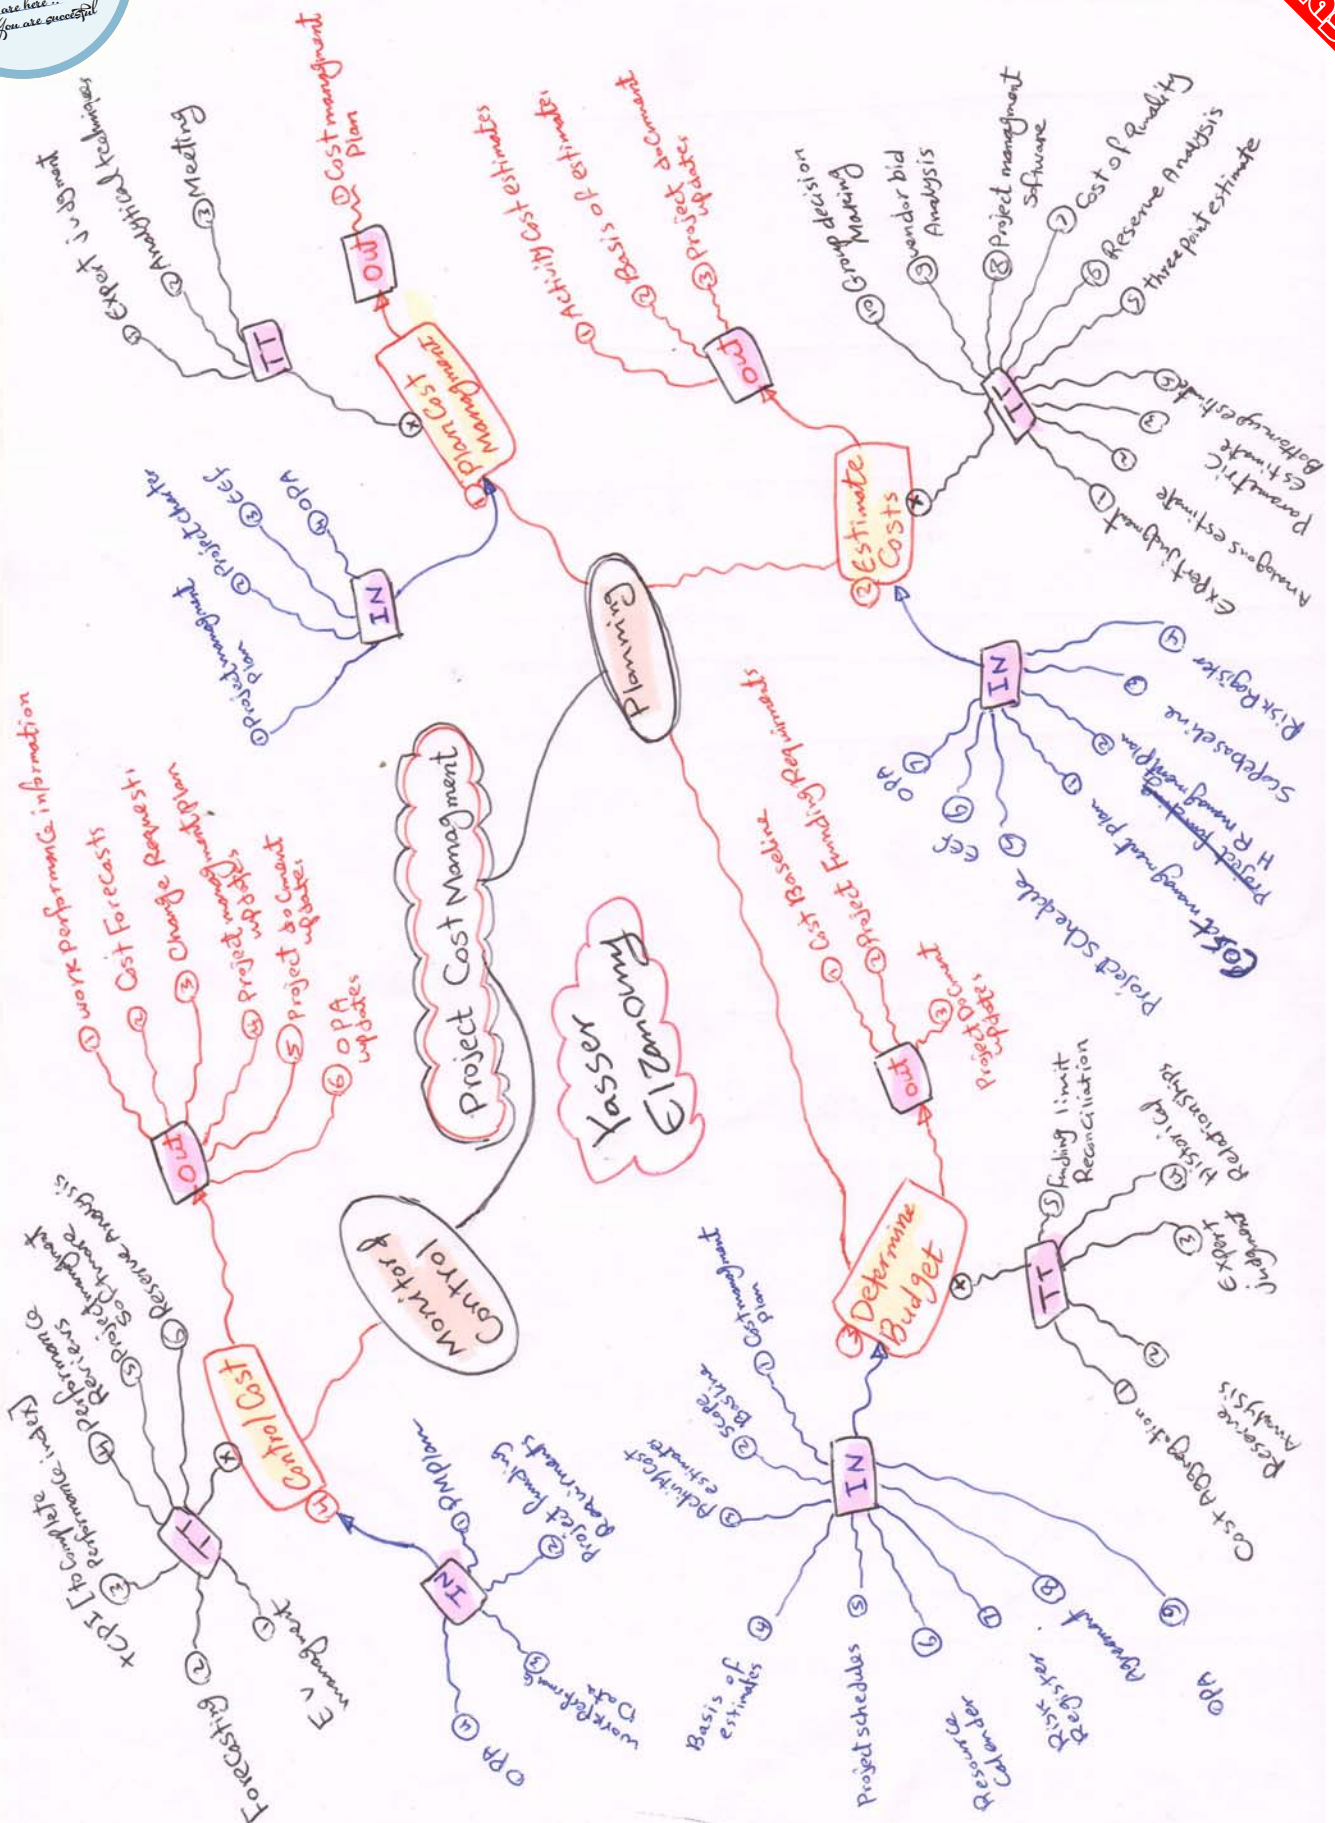 are here ..
You are succesful
Project Cost Managment
Yasser
Elzamouny
Planning
① Plan Cost
Managment
IN
① Project managment
Plan
② Project charter
③ EEF
④ OPA
TT
① Expert judgment
② Analytical techniques
③ Meeting
OUT
① Cost managment
Plan
② Estimate
Costs
IN
① Cost managment plan
② HR managment plan
③ Scope baseline
④ Risk Register
⑤ Project Schedule
⑥ EEF
⑦ OPA
TT
① Expert judgment
② Analogous estimate
③ Parametric
estimate
④ Bottom up estimate
⑤ three point estimate
⑥ Reserve Analysis
⑦ Cost of Quality
⑧ Project managment
Software
⑨ vendor bid
Analysis
⑩ Group decision
Making
OUT
① Activity Cost estimates
② Basis of estimates
③ Project document
updates
③ Determine
Budget
IN
① Cost managment
plan
② Scope
Baseline
③ Activity Cost
estimates
④ Basis of
estimates
⑤ Project schedules
⑥ Resource
Calander
⑦ Risk
Register
⑧ Agreement
⑨ OPA
TT
① Cost Aggregation
② Reserve
Analysis
③ Expert
judgment
④ Historical
Relationships
⑤ Funding limit
Reconciliation
OUT
① Cost Baseline
② Project Funding Requirments
③ Project Document
updates
Monitor &
Control
④ Control Cost
IN
① PM Plan
② Project funding
Requirments
③ work Performance
Data
④ OPA
TT
① EV
managment
② Forecasting
③ TCPI [to Complete
Performance index]
④ Performance
Reviews
⑤ Project managment
Software
⑥ Reserve Analysis
OUT
① work performance information
② Cost Forecasts
③ Change Requests
④ Project managment plan
updates
⑤ Project document
updates
⑥ OPA
updates